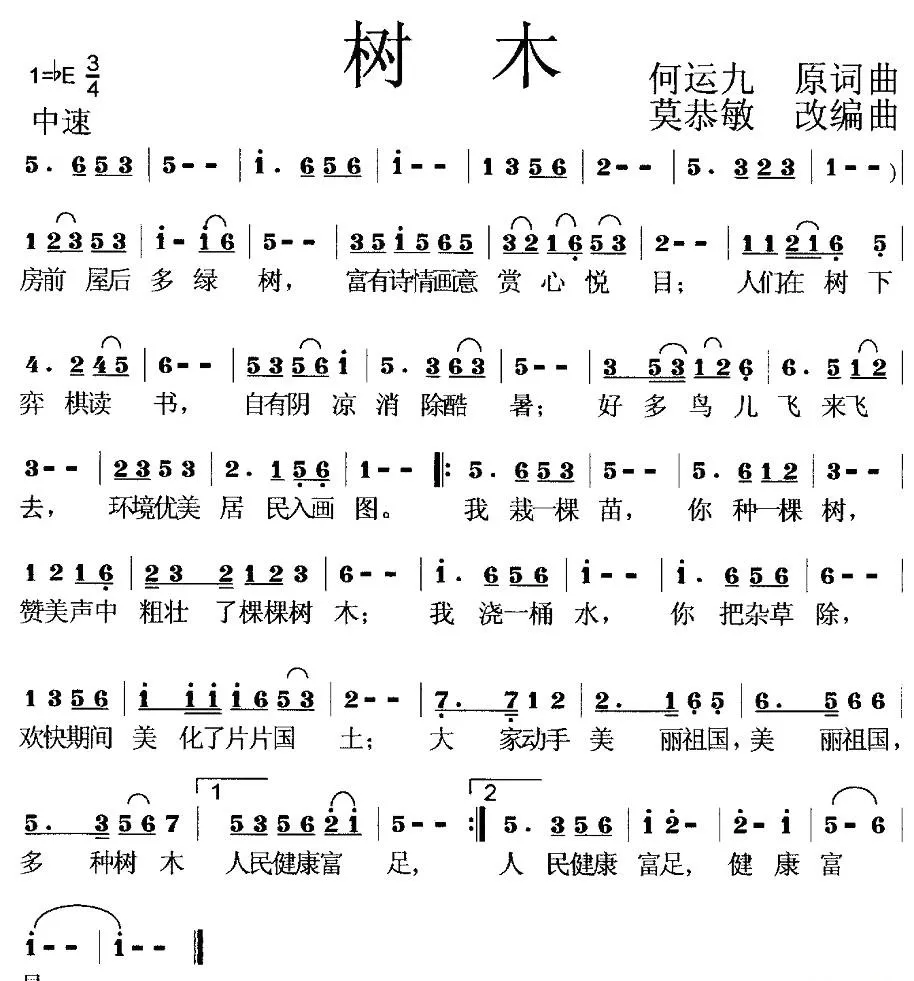 树 木
1=♭E 3/4
何运九 原词曲
中速
莫恭敏 改编曲
5. 6 5 3 | 5 - - | i. 6 5 6 | i - - | 1 3 5 6 | 2 - - | 5. 3 2 3 | 1 - - )
1 2 3 5 3 | i - i 6 | 5 - - | 3 5 i 5 6 5 | 3 2 1 6 5 3 | 2 - - | 1 1 2 1 6 5
房前 屋后 多 绿 树, 富有诗情画意 赏 心 悦 目; 人们在 树 下
4. 2 4 5 | 6 - - | 5 3 5 6 i | 5. 3 6 3 | 5 - - | 3 5 3 1 2 6 | 6. 5 1 2 |
弈 棋读 书, 自有阴 凉 消 除酷 暑; 好 多 鸟 儿 飞 来飞
3 - - | 2 3 5 3 | 2. 1 5 6 | 1 - - |: 5. 6 5 3 | 5 - - | 5. 6 1 2 | 3 - - |
去, 环境优美 居 民入画 图。 我 栽一棵 苗, 你 种一棵 树,
1 2 1 6 | 2 3 2 1 2 3 | 6 - - | i. 6 5 6 | i - - | i. 6 5 6 | 6 - - |
赞美声中 粗壮 了棵棵树 木; 我 浇一桶 水, 你 把杂草 除,
1 3 5 6 | i i i i 6 5 3 | 2 - - | 7. 7 1 2 | 2. 1 6 5 | 6. 5 6 6 |
欢快期间 美 化了片片国 土; 大 家动手 美 丽祖国,美 丽祖国,
1 2
5. 3 5 6 7 | 5 3 5 6 2 i | 5 - - :| 5. 3 5 6 | i 2 - | 2 - i | 5 - 6 |
多 种树 木 人民健康富 足, 人 民健康 富足, 健 康 富
i - - | i - - |